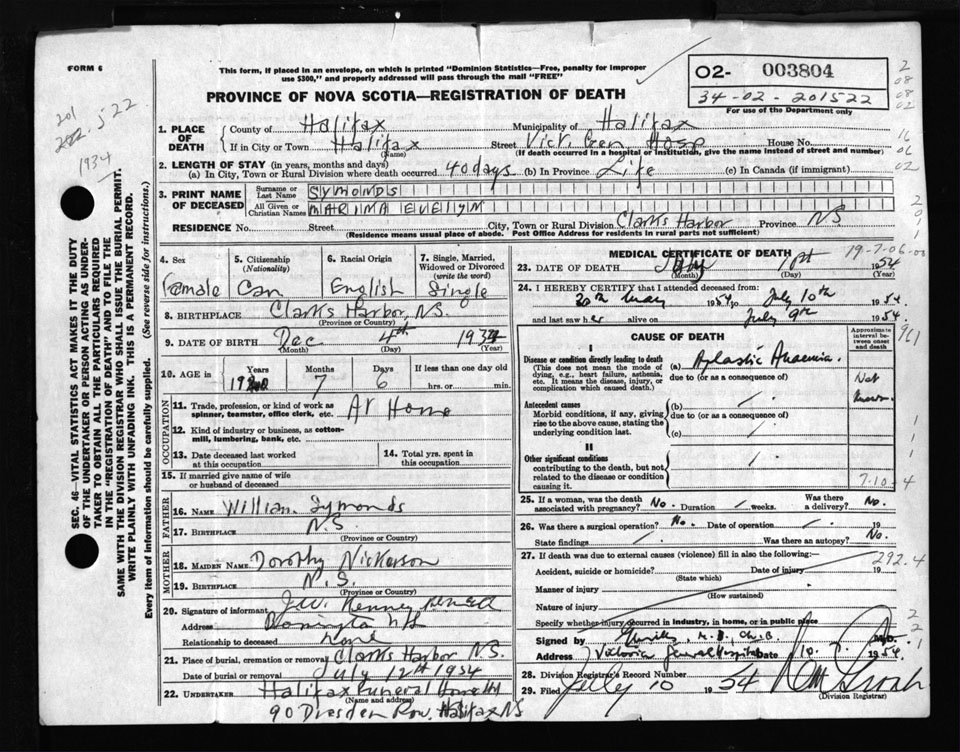 FORM 6
This form, if placed in an envelope, on which is printed "Dominion Statistics—Free, penalty for improper use $300," and properly addressed will pass through the mail "FREE"
PROVINCE OF NOVA SCOTIA—REGISTRATION OF DEATH
02- 003804
34-02-201522
For use of the Department only
201
522
1934
2
08
08
02
16
06
02
1. PLACE OF DEATH
County of Halifax Municipality of Halifax
If in City or Town Halifax (Name) Street Vict. Gen. Hosp House No.
(If death occurred in a hospital or institution, give the name instead of street and number)
2. LENGTH OF STAY (in years, months and days)
(a) In City, Town or Rural Division where death occurred 40 days (b) In Province Life (c) In Canada (if immigrant)
3. PRINT NAME OF DECEASED
Surname or Last Name SYMONDS
All Given or Christian Names EVELYN
RESIDENCE No. Street City, Town or Rural Division Clarks Harbor Province NS
(Residence means usual place of abode. Post Office Address for residents in rural parts not sufficient)
4. Sex Female
5. Citizenship (Nationality) Can
6. Racial Origin English
7. Single, Married, Widowed or Divorced (write the word) Single
8. BIRTHPLACE Clarks Harbor, N.S.
(Province or Country)
9. DATE OF BIRTH Dec 4th
(Month) (Day) (Year)
10. AGE in Years Months 7 Days 6 If less than one day hrs. or min.
OCCUPATION
11. Trade, profession, or kind of work as spinner, teamster, office clerk, etc. At Home
12. Kind of industry or business, as cotton-mill, lumbering, bank, etc.
13. Date deceased last worked at this occupation
14. Total yrs. spent in this occupation
15. If married give name of wife or husband of deceased
FATHER
16. NAME William Symonds
17. BIRTHPLACE N.S.
(Province or Country)
MOTHER
18. MAIDEN NAME Dorothy Nickerson
19. BIRTHPLACE N.S.
(Province or Country)
20. Signature of informant Kenney
Address
Relationship to deceased None
21. Place of burial, cremation or removal Clarks Harbor N.S.
Date of burial or removal July 12th 1954
22. UNDERTAKER Halifax Funeral Home
(Name and address)
90 Dresden Row, Halifax NS
MEDICAL CERTIFICATE OF DEATH
19-7-06-
23. DATE OF DEATH July 10th 1954
(Month) (Day) (Year)
24. I HEREBY CERTIFY that I attended deceased from:
20th May 1954 to July 10th 1954.
and last saw her alive on July 9th 1954.
CAUSE OF DEATH
Approximate interval between onset and death
I
Disease or condition directly leading to death
(This does not mean the mode of dying, e.g., heart failure, asthenia, etc. It means the disease, injury, or complication which caused death.)
(a) Aplastic Anaemia.
due to (or as a consequence of)
Not known
Antecedent causes
Morbid conditions, if any, giving rise to the above cause, stating the underlying condition last.
(b)
due to (or as a consequence of)
(c)
II
Other significant conditions
contributing to the death, but not related to the disease or condition causing it.
7-10-4
25. If a woman, was the death associated with pregnancy? No. Duration weeks. Was there a delivery? No.
26. Was there a surgical operation? No. Date of operation 19
State findings Was there an autopsy? No.
27. If death was due to external causes (violence) fill in also the following:—
292.4
Accident, suicide or homicide? Date of injury 19
(State which)
Manner of injury
(How sustained)
Nature of injury
Specify whether injury occurred in industry, in home, or in public place
Signed by M.B. Ch.B.
Address Victoria General Hospital Date 10. 7. 1954.
28. Division Registrar's Record Number
29. Filed July 10 1954
(Division Registrar)
SEC. 46—VITAL STATISTICS ACT MAKES IT THE DUTY OF THE UNDERTAKER OR PERSON ACTING AS UNDERTAKER TO OBTAIN ALL THE PARTICULARS REQUIRED IN THE "REGISTRATION OF DEATH" AND TO FILE THE SAME WITH THE DIVISION REGISTRAR WHO SHALL ISSUE THE BURIAL PERMIT.
WRITE PLAINLY WITH UNFADING INK. THIS IS A PERMANENT RECORD.
Every item of information should be carefully supplied. (See reverse side for instructions.)